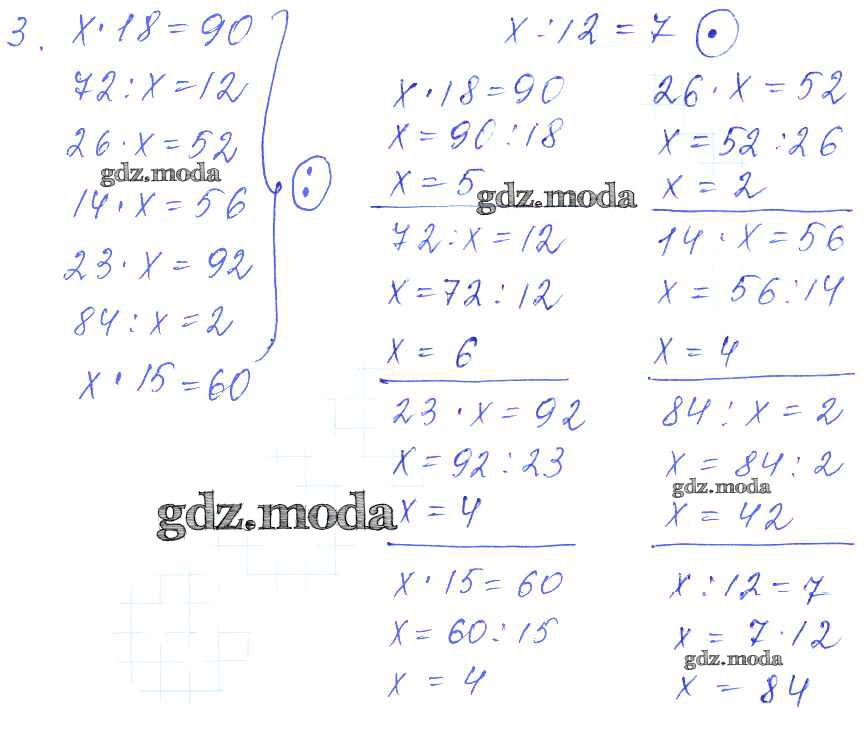 3. x · 18 = 90
72 : x = 12
26 · x = 52
gdz.moda
14 · x = 56
23 · x = 92
84 : x = 2
x · 15 = 60
:
x : 12 = 7 ·
x · 18 = 90
x = 90 : 18
x = 5
gdz.moda
72 : x = 12
x = 72 : 12
x = 6
23 · x = 92
x = 92 : 23
gdz.moda
x = 4
x · 15 = 60
x = 60 : 15
x = 4
26 · x = 52
x = 52 : 26
x = 2
14 · x = 56
x = 56 : 14
x = 4
84 : x = 2
x = 84 : 2
gdz.moda
x = 42
x : 12 = 7
x = 7 · 12
gdz.moda
x = 84